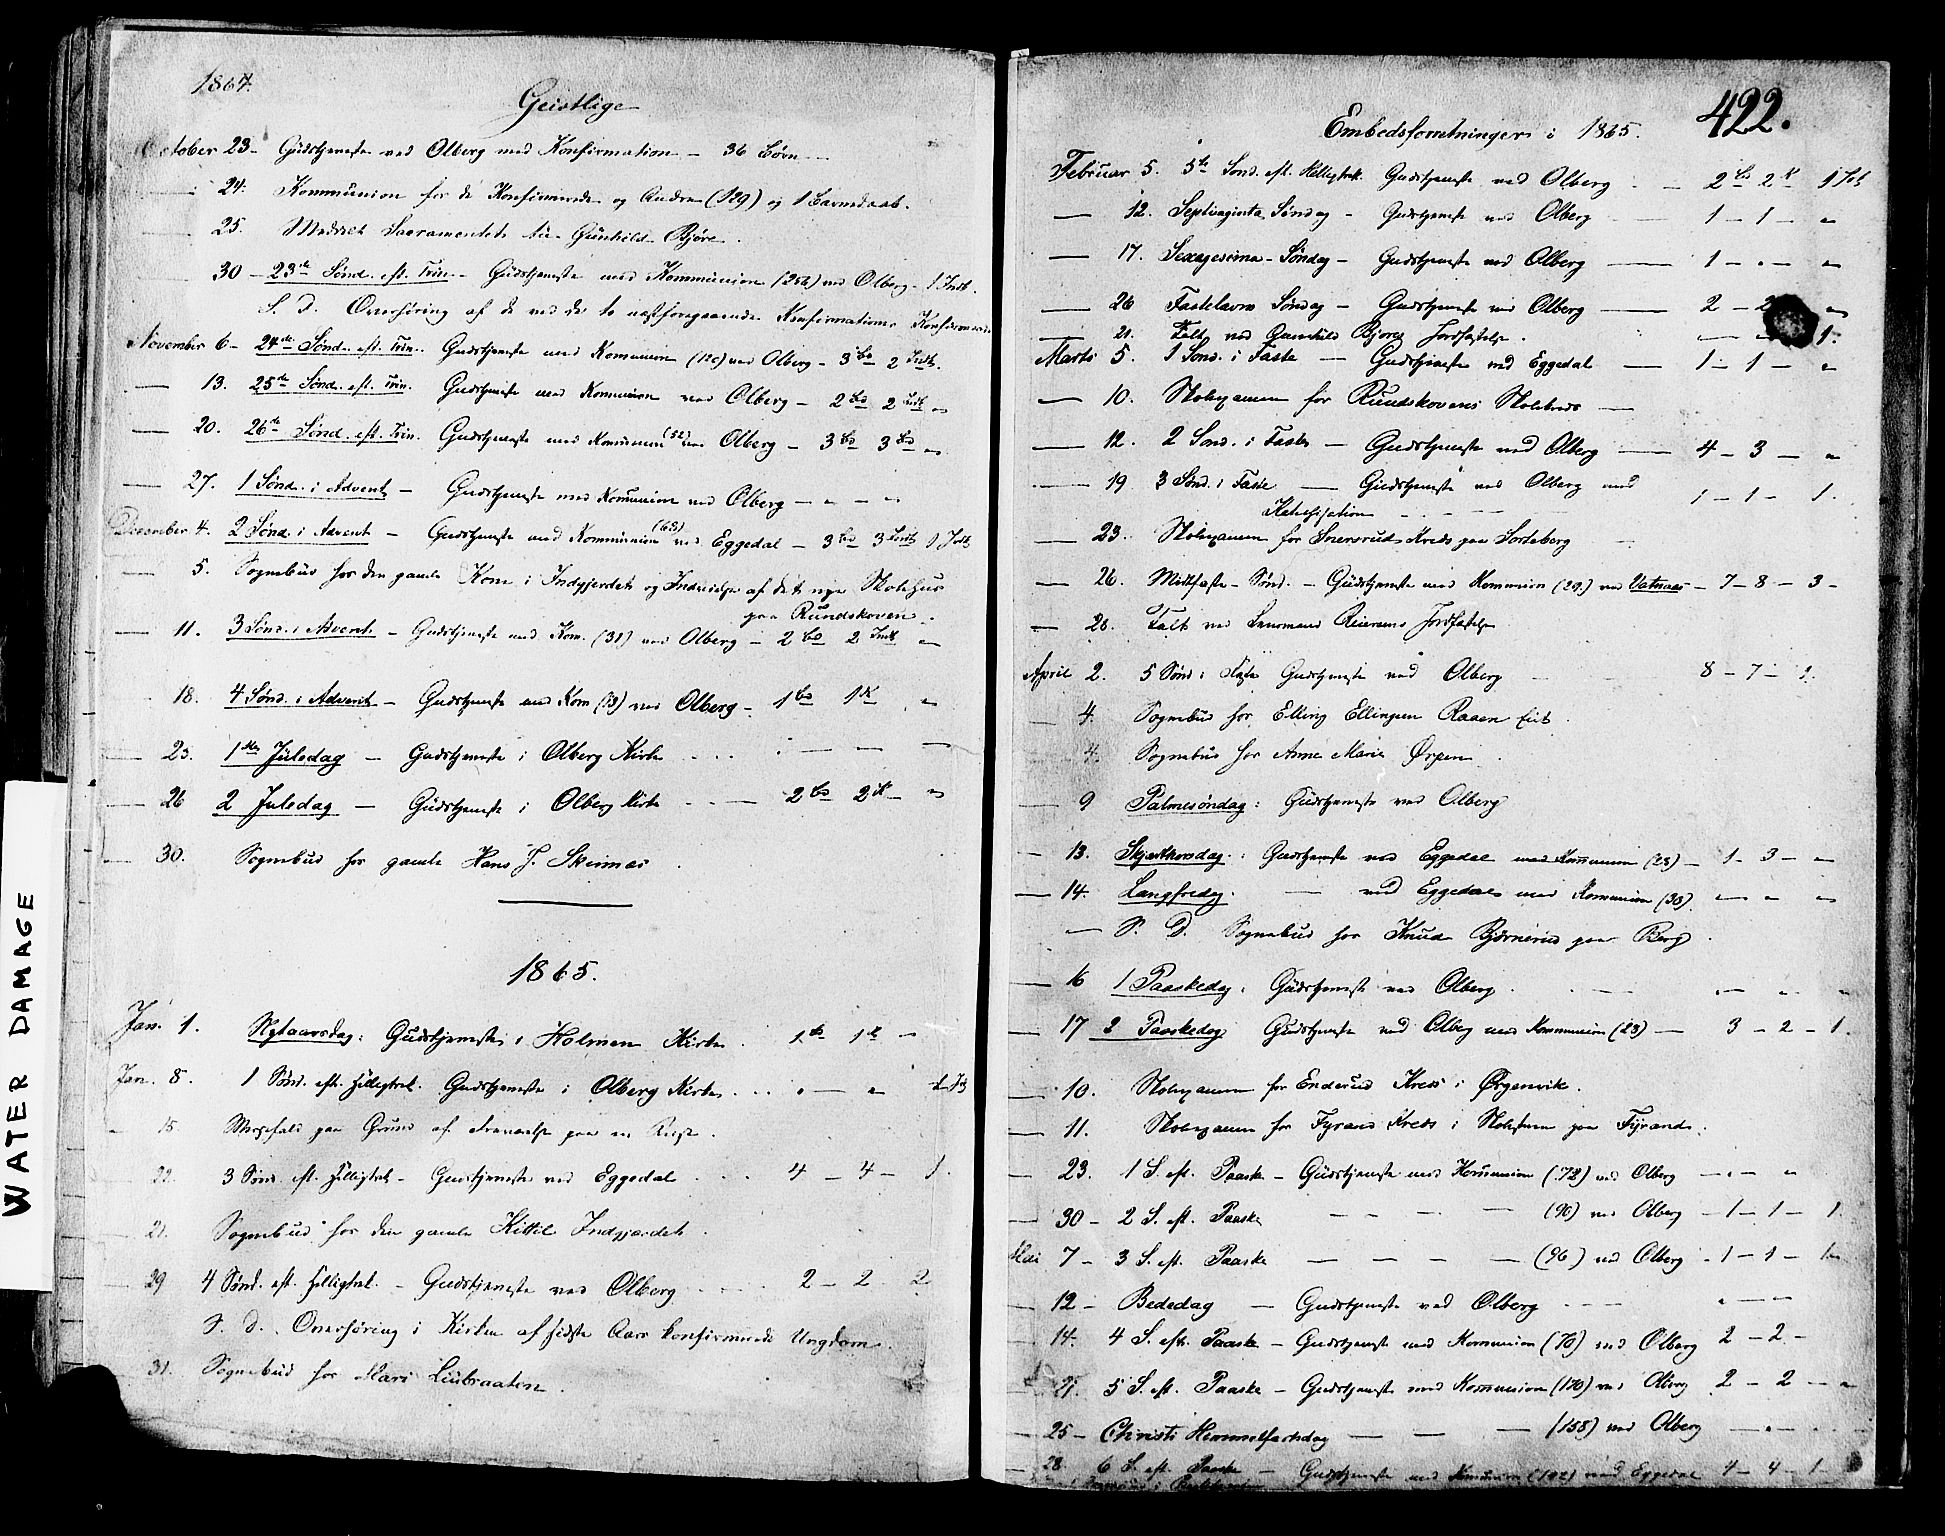 1864.
Geistlige
October 23 - Gudstjeneste ved Olberg med Konfirmation - 36 Børn
24. Kommunion for de Konfirmerede og Andre (129) og 1 Barnedaab.
25. Meddelt Sacramentet til Gunhild Bjøre.
30 - 23de Sønd. eft. Trin. - Gudstjeneste med Kommunion (256) ved Olberg - 1 Indt.
S. D. Overhøring af de ved de to næstforegaaende Konfirmationer Konfirmerede
November 6 - 24de Sønd. eft. Trin. Gudstjeneste med Kommunion (120) ved Olberg - 3 Bd 2 Indt.
13. 25de Sønd. eft. Trin. Gudstjeneste med Kommunion ved Olberg - 2 Bd 2 Indt "
20. 26de Sønd. eft. Trin. Gudstjeneste med Kommunion (52) ved Olberg - 3 Bd 3 "
27. 1 Sønd. i Advent - Gudstjeneste med Kommunion ved Olberg - " - "
December 4. 2 Sønd. i Advent - Gudstjeneste med Kommunion (63) ved Eggedal - 3 Bd 3 Indt 1 Jordf
5. Sognebud hos den gamle Kone i Indgjerdet og Indvielse af det nye Skolehus
paa Rundskoven.
11. 3 Sønd. i Advent - Gudstjeneste med Kom. (31) ved Olberg - 2 Bd 2 Indt "
18. 4 Sønd. i Advent - Gudstjeneste med Kom (13) ved Olberg - 1 Bd 1 K "
25. 1ste Juledag - Gudstjeneste i Olberg Kirke
26 2 Juledag - Gudstjeneste i Olberg Kirke - 2 Bd 2 K - "
30. Sognebud hos gamle Hans J. Skeimas
1865.
Jan. 1. Nytaarsdag: Gudstjeneste i Holmen Kirke. 1 B 1 K -
Jan. 8. 1 Sønd. eft. Helligtrek. Gudstjeneste i Olberg Kirke
15. Messefald paa Grund af Fraværelse paa en Reise.
22. 3 Sønd. eft. Helligtrek. - Gudstjeneste ved Eggedal 4 - 4 - 1.
21. Sognebud hos den gamle Kittil Indgjerdet.
29 4 Sønd. eft. Helligtrek. - Gudstjeneste ved Olberg 2 - 2 2
S. d. Overhøring i Kirken af sidste Aars konfirmerede Ungdom.
31. Sognebud hos Mari Liubraaten.
422.
Embedsforretninger i 1865.
Februar 5. 5te Sønd. eft. Helligtrek. Gudstjeneste ved Olberg - 2 B 2 K 1 Jdf
12. Septuaginta Søndag - Gudstjeneste ved Olberg 1 - 1 - "
17. Sexagesima - Søndag - Gudstjeneste ved Olberg 1 - " - "
26 Fastelavns Søndag - Gudstjeneste ved Olberg 2 - 2 "
21. Talt ved Gunhild Bjøres Jordfæstelse. 1.
Marts 5. 1 Sønd. i Faste - Gudstjeneste ved Eggedal 1 - 1 - "
10. Skolexamen for Rundskovens Skolekreds
12. 2 Sønd. i Faste - Gudstjeneste ved Olberg 4 - 3 - "
19 3 Sønd. i Faste - Gudstjeneste ved Olberg med
Katechisation 1 - 1 - 1.
23. Skolexamen for Snersrud Kreds paa Sorteberg
26. Midtfaste - Sønd. - Gudstjeneste med Kommunion (29.) ved Vatnaas - 7 - 8 - 3 -
26. Talt ved Lensmand Reiersens Jordfæstelse
April 2. 5 Sønd. i Faste Gudstjeneste ved Olberg 8 - 7 - 1.
4. Sognebud hos Elling Ellingsen Raaen
4. Sognebud hos Anne Marie Ørpen
9 Palmesøndag: Gudstjeneste ved Olberg
13. Skjærthorsdag: Gudstjeneste ved Eggedal med Kommunion (23) - 1 - 3 - "
14. Langfredag. - ved Eggedal med Kommunion (38). " "
S. D. Sognebud hos Knud Bjørnerud paa Berg.
16 1 Paaskedag. Gudstjeneste ved Olberg
17 2 Paaskedag Gudstjeneste ved Olberg med Kommunion (23) - 3 - 2 - 1.
10. Skolexamen for Enderud Kreds i Ørgenvik.
11. Skolexamen for Fyrand Kreds i Skolestuen paa Fyrand.
23. 1 S. eft. Paaske - Gudstjeneste med Kommunion (72) ved Olberg
30 - 2 S. eft. Paaske - - - - (90) ved Olberg - 1 - 1 - 1.
Mai 7 - 3 S. eft. Paaske - - - - (96) ved Olberg - 1 - 1 - 1
12 - Bededag - Gudstjeneste ved Olberg
14. 4 S. eft. Paaske - Gudstjeneste med Kommunion (70) ved Olberg 2 - 2 -
21. 5 S. eft. Paaske - Gudstjeneste med Kommunion (170) ved Olberg 2 - 2 - "
25 - Christi Himmelfartsdag - - - (158) ved Olberg
28. 6 S. eft. Paaske - Gudstjeneste med Kommunion (192) ved Eggedal 4 - 4 - 1 -
WATER DAMAGE